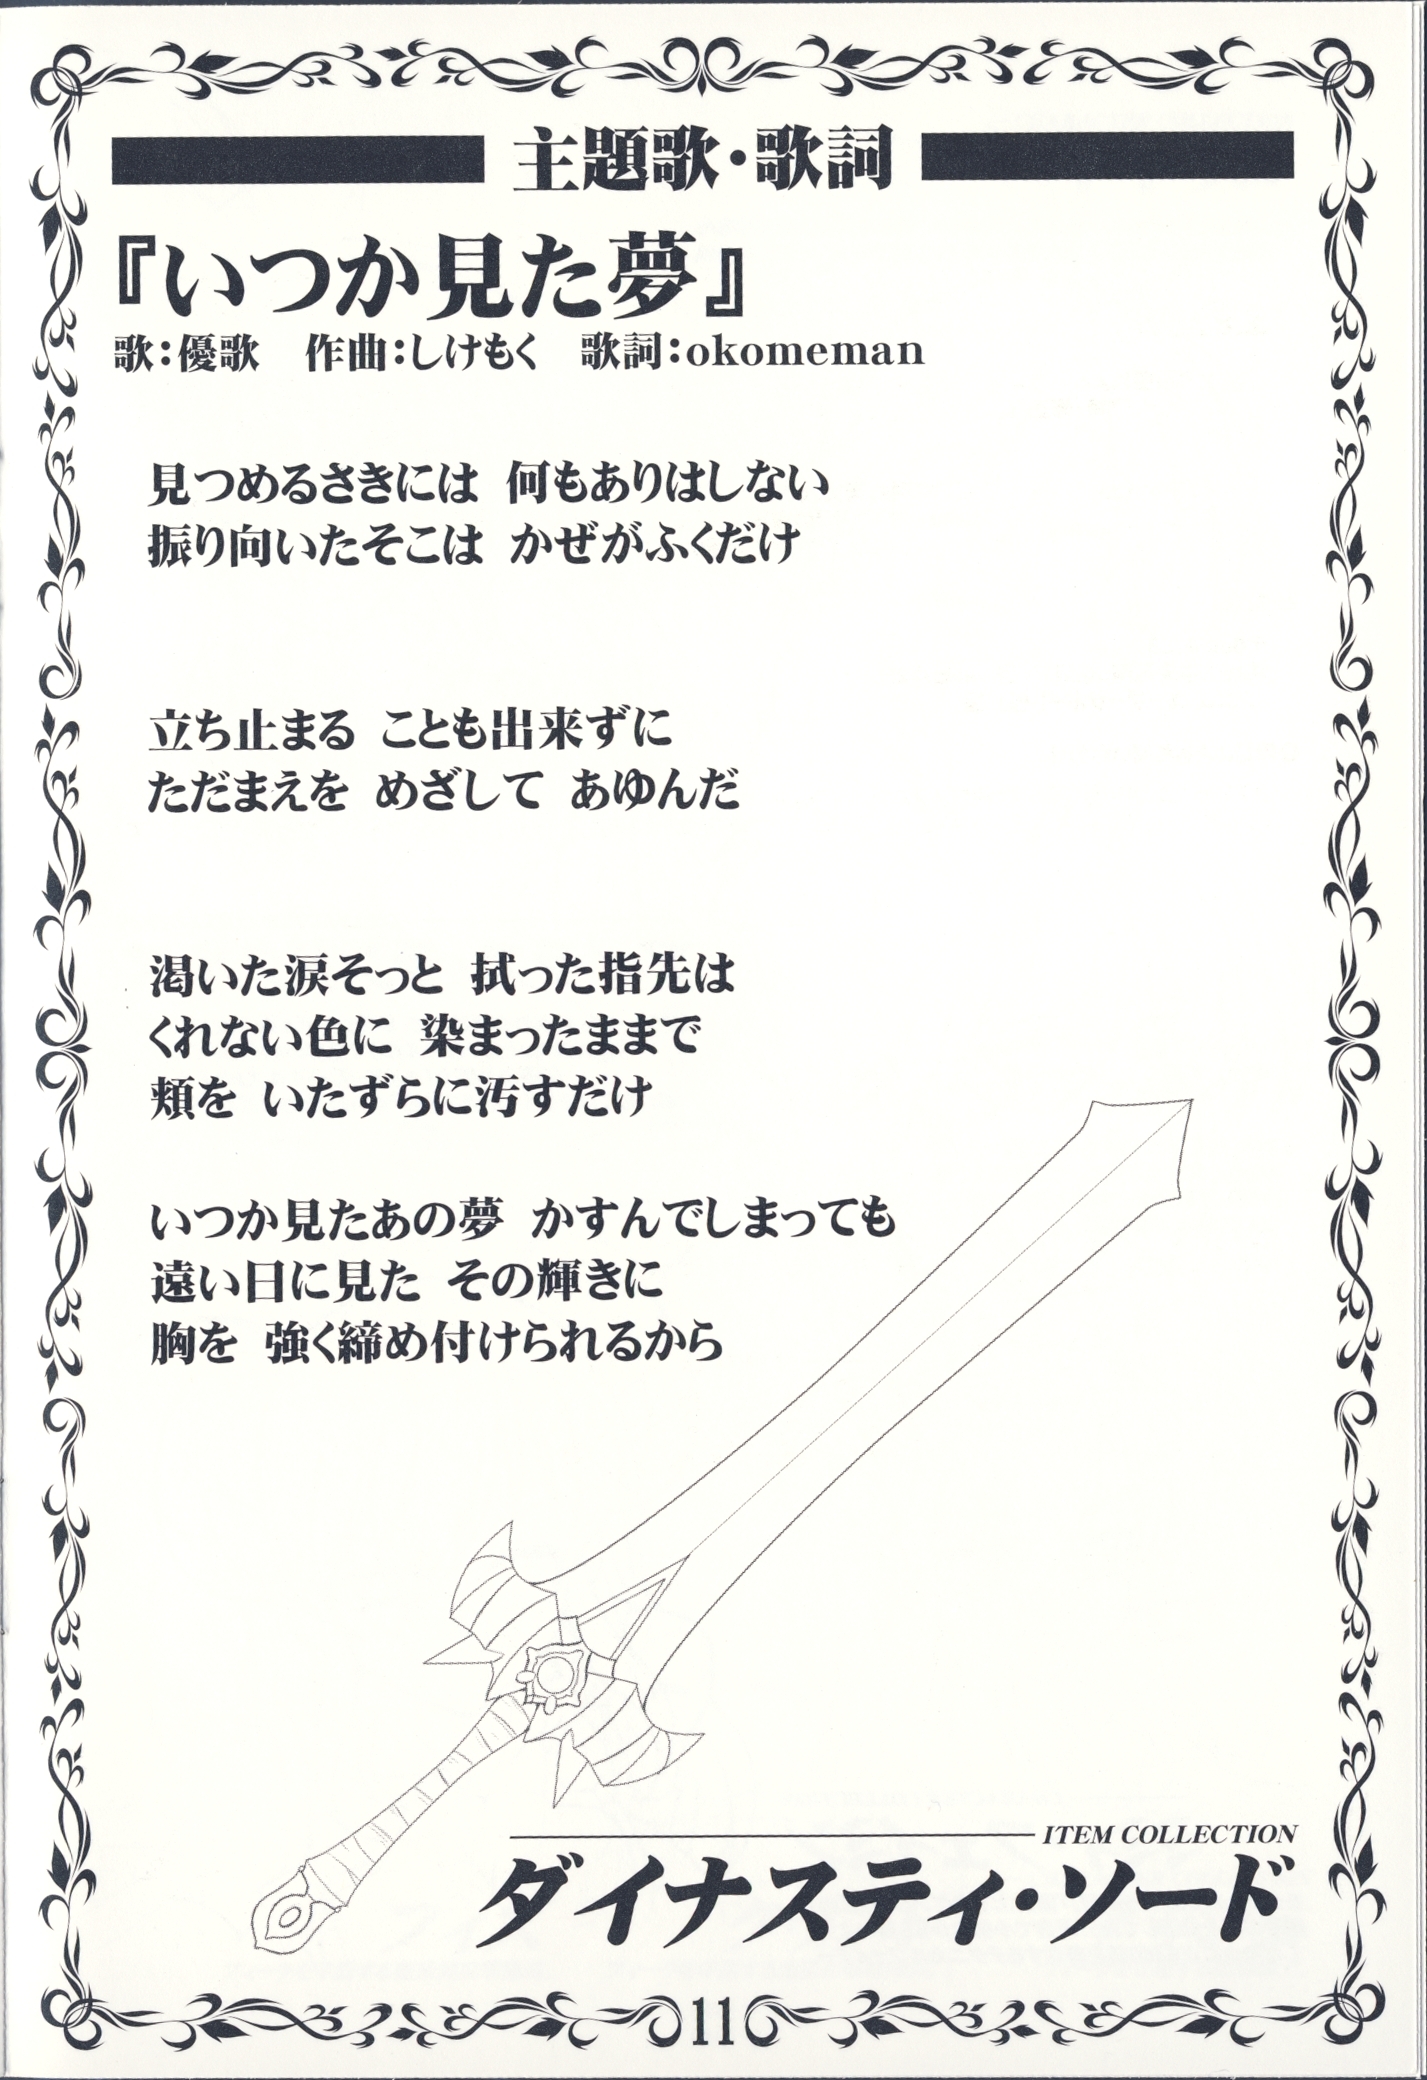 主題歌・歌詞
『いつか見た夢』
歌：優歌　作曲：しけもく　歌詞：okomeman
見つめるさきには 何もありはしない
振り向いたそこは かぜがふくだけ
立ち止まる ことも出来ずに
ただまえを めざして あゆんだ
渇いた涙そっと 拭った指先は
くれない色に 染まったままで
頬を いたずらに汚すだけ
いつか見たあの夢 かすんでしまっても
遠い日に見た その輝きに
胸を 強く締め付けられるから
ITEM COLLECTION
ダイナスティ・ソード
11